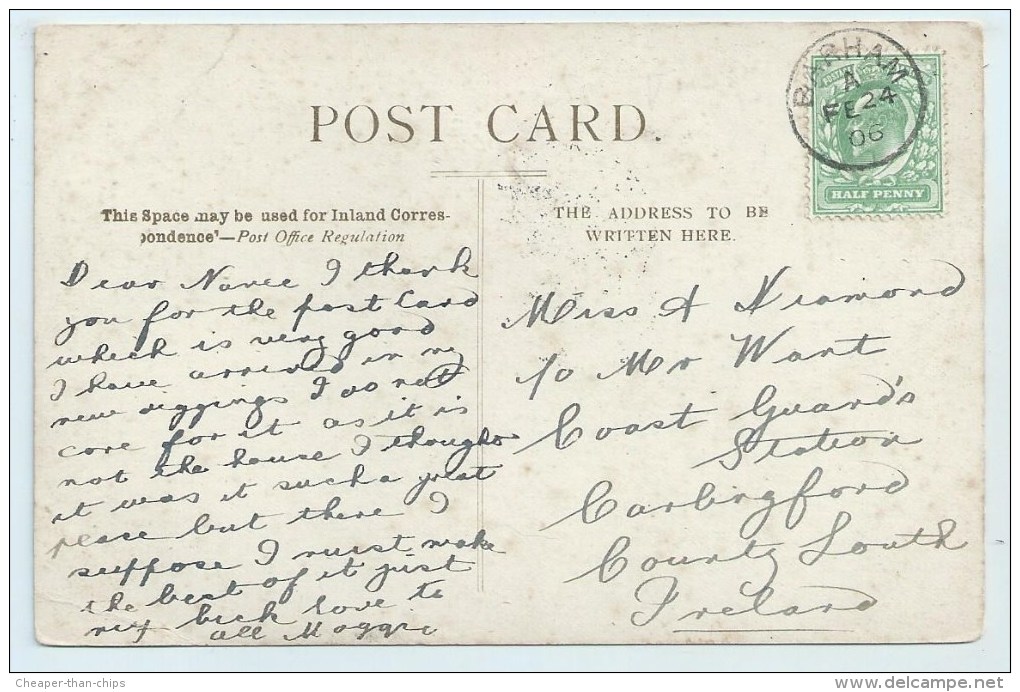 POST CARD.
BARHAM
A
FE 24
06
HALF PENNY
This Space may be used for Inland Corres-
pondence'—Post Office Regulation
THE ADDRESS TO BE
WRITTEN HERE.
Dear Nance I thank
you for the post Card
which is very good
I have arrived in my
new diggings I do not
care for it as it is
not the house I thought
it was it such a great
place but there I
suppose I must make
the best of it just
my luck love to
all Maggie
Miss A Diamond
c/o Mr Want
Coast Guard's
Station
Carlingford
County Louth
Ireland
Cheaper-than-chips
www.delcampe.net